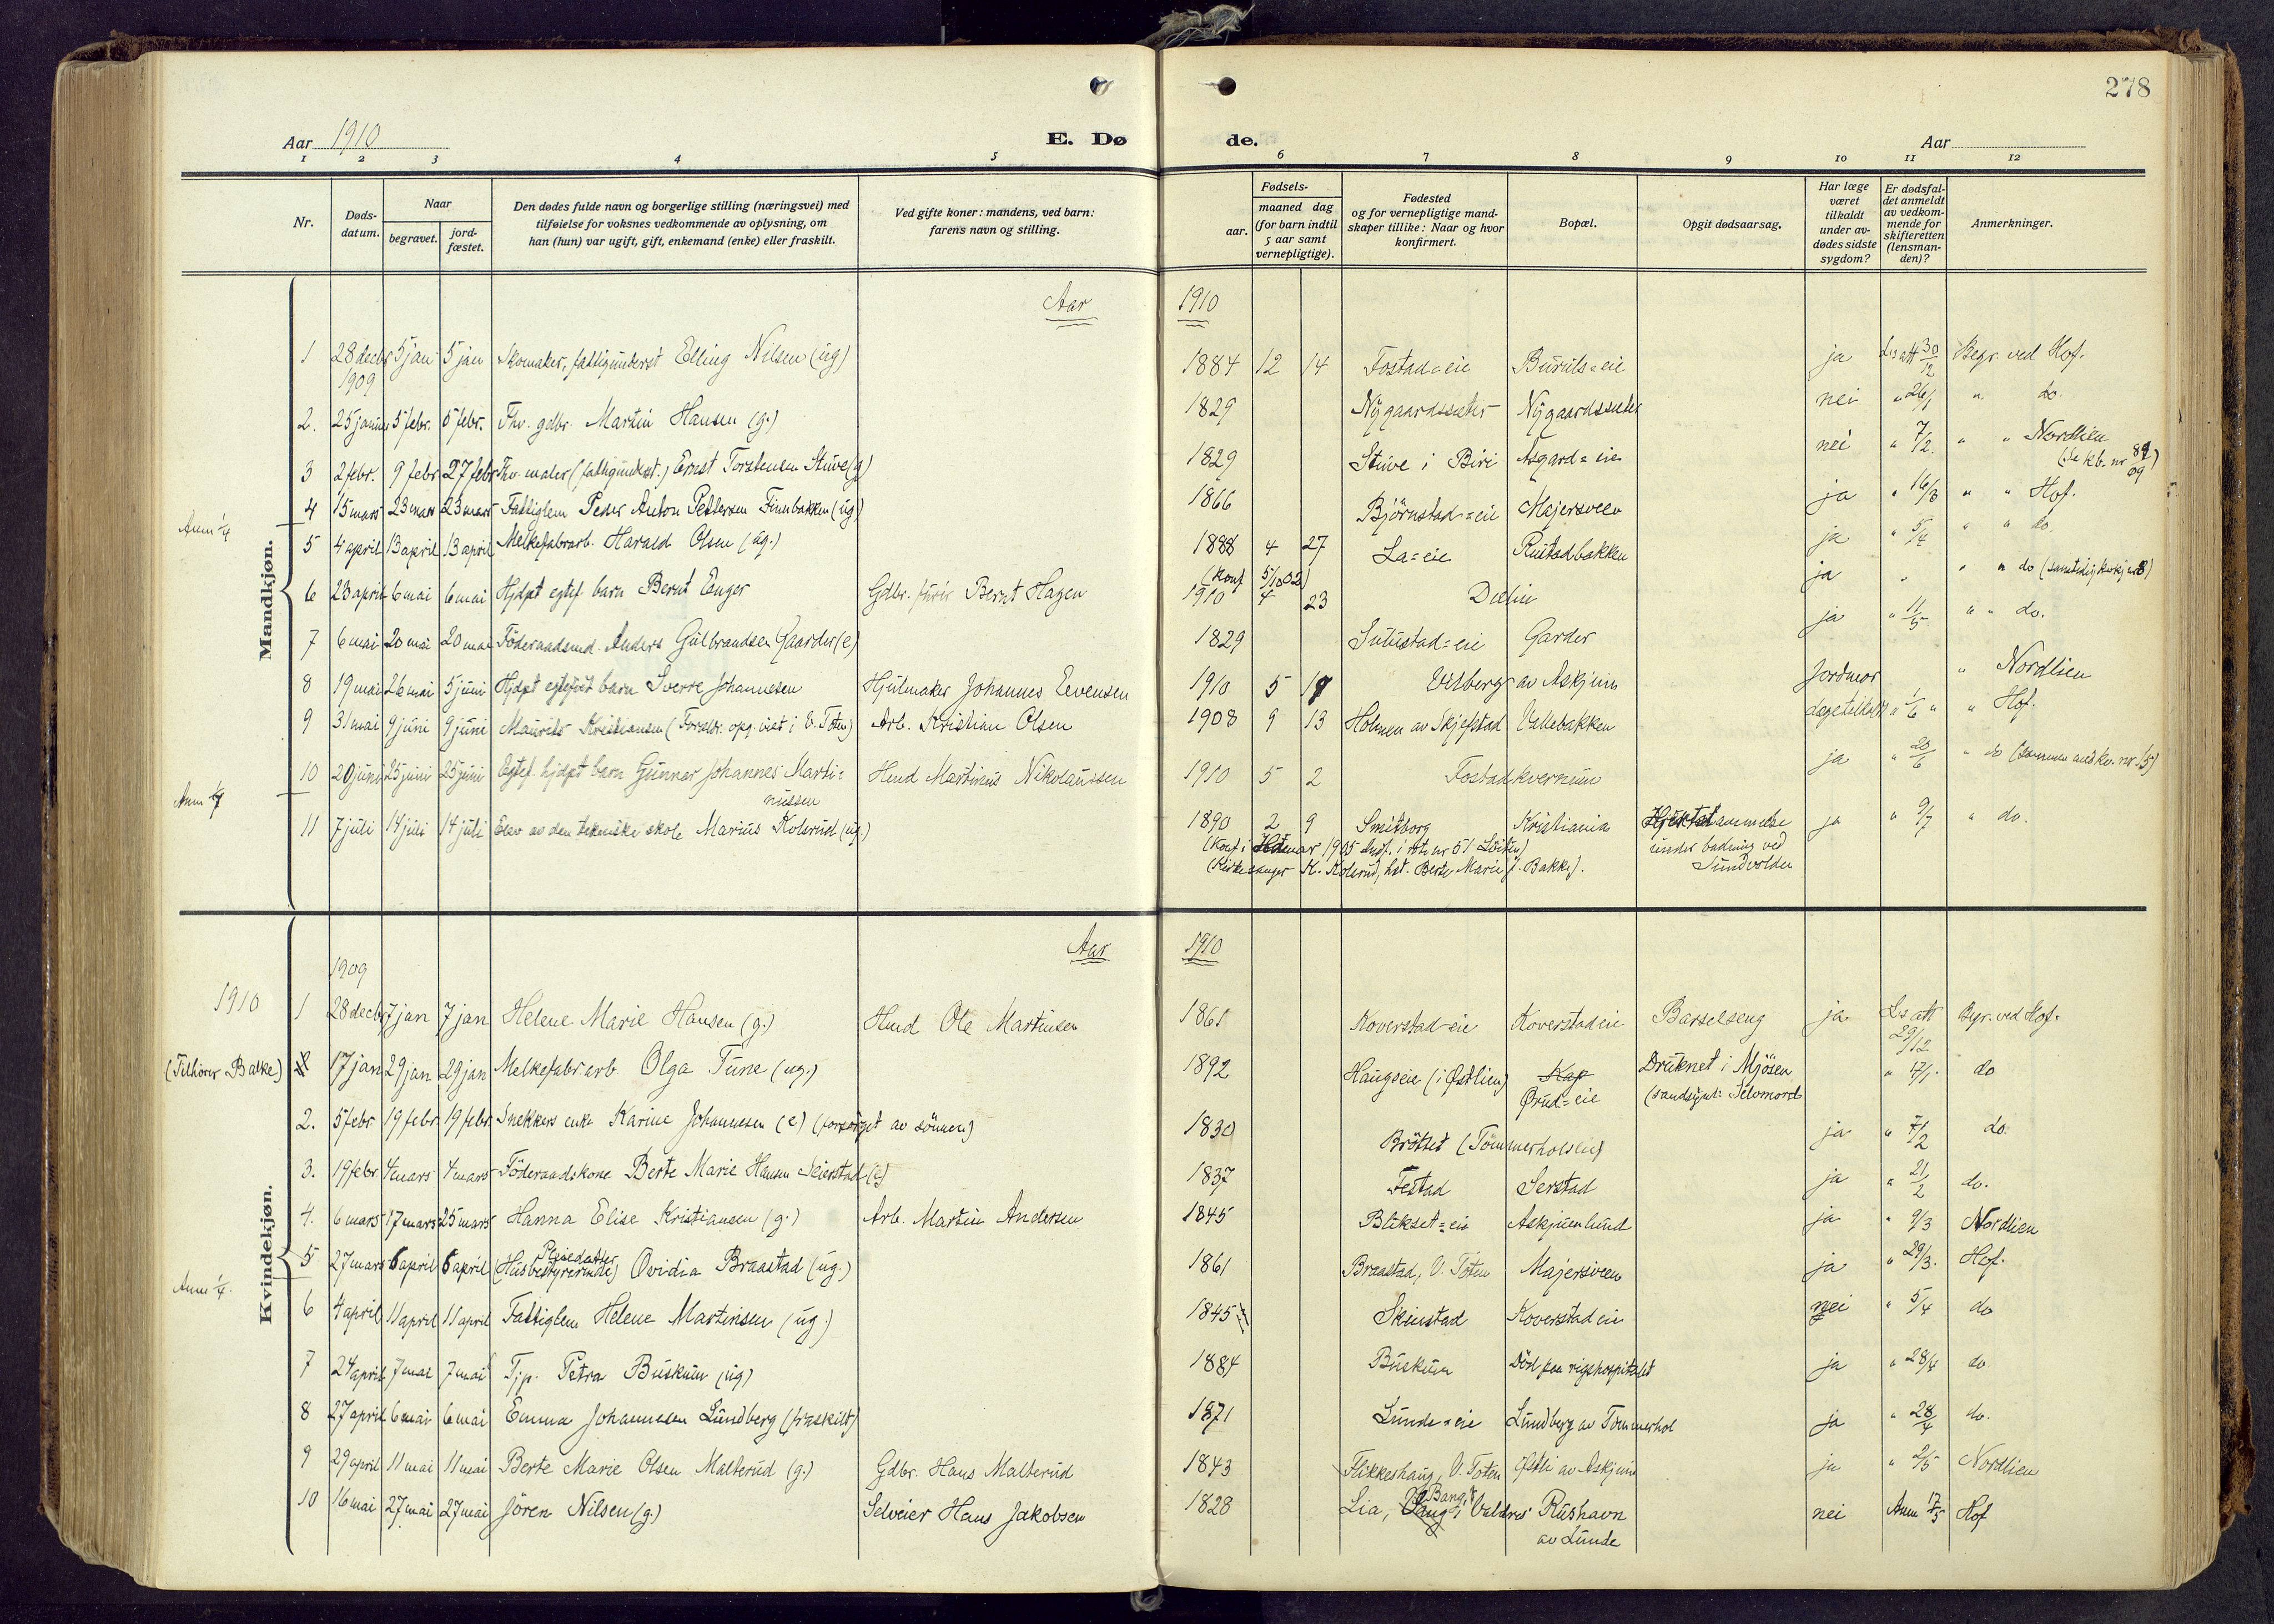 278
Aar 1910 E. Dø de. Aar
1 2 3 4 5 6 7 8 9 10 11 12
Nr. Døds-datum. Naar begravet. jord-fæstet. Den dødes fulde navn og borgerlige stilling (næringsvei) med tilføielse for voksnes vedkommende av oplysning, om han (hun) var ugift, gift, enkemand (enke) eller fraskilt. Ved gifte koner: mandens, ved barn: farens navn og stilling. Fødsels- aar. maaned dag (for barn indtil 5 aar samt vernepligtige). Fødested og for vernepligtige mand-skaper tillike: Naar og hvor konfirmert. Bopæl. Opgit dødsaarsag. Har læge været tilkaldt under av-dødes sidste sygdom? Er dødsfal-det anmeldt av vedkom-mende for skifteretten (lensman-den)? Anmerkninger.
Aar 1910
Mandkjøn.
1 28 decbr 1909 5 jan 5 jan Skomaker, fattigunderst Elling Nilsen (ug) 1884 12 14 Fostad=eie Buruls=eie ja Ls att 30/12 Begr. ved Hof.
2. 25 januar 5 febr. 5 febr. Fhv. gdbr. Martin Hansen (g.) 1829 Nygaardssæter Nygaardssæter nei " 26/1 " do.
3 2 febr. 9 febr 27 febr Fhv. maler (fattigunderst.) Ernst Torstensen Stuve (g) 1829 Stuve i Biri Asgard=eie nei " 7/2. " " Nordlien
(Se kb. nr 81/09)
4 15 mars 23 mars 23 mars Fattiglem Peder Anton Pettersen Finnbakken (ug) 1866 Bjørnstad=eie Majersveen ja " 16/3 " " Hof.
Anm 1/4
5 4 april 13 april 13 april Melkefabrarb. Harald Olsen (ug.) 1888 4 27 La=eie Rustadbakken ja " 5/4 " " do.
(Konf 5/10 02)
6 23 april 6 mai 6 mai Hjdpt egtef barn Bernt Enger Gdbr. Bernt Hagen 1910 4 23 Dælin ja " " " do (samtidig
7 6 mai 20 mai 20 mai Föderaadsmd. Anders Gulbrandsen Gaarder (e) 1829 Sulustad=eie Garder ja " 11/5 " " do.
8 19 mai 26 mai 5 juni Hjdpt egtefødt barn Sverre Johannesen Hjulmaker Johannes Evensen 1910 5 18 Velberg av Askjum Jordmor " Nordlien
9 31 mai 9 juni 9 juni Maurits Kristiansen (Foreldr. opg. viet i V. Toten) Arb. Kristian Olsen 1908 9 13 Holmen av Skjefstad Vallebakken Lægetilkaldt " 1/6 " " Hof.
10 20 juni 25 juni 25 juni Egtef hjdpt barn Gunnar Johannes Marti=
nussen Hmd Martinus Nikolaussen 1910 5 2 Fostadkvernum ja " 20/6 " do (sammen med kv. nr. 15)
Anm 1/7
11 7 juli 14 juli 14 juli Elev av den tekniske skole Marius Kolsrud (ug.) 1890 2 9 Smitborg Kristiania Hjertelammelse ja " 9/7 " do.
(Konf i Hedemar 1905 Indf. i rote nr 51 Löiten) under badning ved
(Kirkesanger K. Kolsrud, hst. Berte Marie f. Bakke). Sundvolden
Aar 1910
Kvindekjøn.
1909
1910 1 28 decbr 7 jan 7 jan Helene Marie Hansen (g.) Hmd Ole Martinsen 1861 Koverstad=eie Koverstad eie Barselseng ja Ls att 29/12 Begr. ved Hof.
(Tilhører Balke) 17 jan 29 jan 29 jan Melkefabrarb. Olga Tune (ug.) 1892 Haugseie (i Østlien) Kap Druknet i Mjösen " 17/1. do
Ørud=eie (sandsynl. Selvmord
2. 5 febr 19 febr. 19 febr. Snekkers enke Karine Johannesen (e) (forsørget av sönnen) 1830 Bröttet (Tömmerholslie) ja " 7/2 do.
3. 19 febr. 4 mars 4 mars Föderaadskone Berte Marie Hansen Seierstad (e) 1837 Festad Serstad ja " 21/2 do.
4. 6 mars 17 mars 25 mars Hanna Elise Kristiansen (g.) Arb. Martin Andersen 1845 Blikset=eie Askjumlund ja " 9/3 Nordlien
Pleiedatter
5 27 mars 6 april 6 april (Husbestyrerinde) Ovidia Braastad (ug.) 1861 Braastad, V. Toten Majersveen ja " 29/3. Hof.
Anm 1/4.
6 4 april 11 april 11 april Fattiglem Helene Martinsen (ug.) 1845 Skeistad Koverstad eie nei " 5/4 do
7 24 april 7 mai 7 mai Tjp. Petra Buskum (ug) 1884 Buskum Död paa rigshospitalet ja " 28/4 do.
8 27 april 6 mai 6 mai Emma Johannesen Lundberg (fraskilt) 1871 Lunde=eie Lundberg av Tömmerhol ja " 28/4 do.
9 29 april 11 mai 11 mai Berte Marie Olsen Malterud (g.) Gdbr. Hans Malterud 1843 Flikkeshaug, V. Toten Østli av Askjum ja " 2/5 Nordlien
10 16 mai 27 mai 27 mai Jören Nilsen (g.) Selveier Hans Jakobsen 1828 Lia, Bang, Valdres Rushavn nei Anm 17/5 Hof
av Lunde